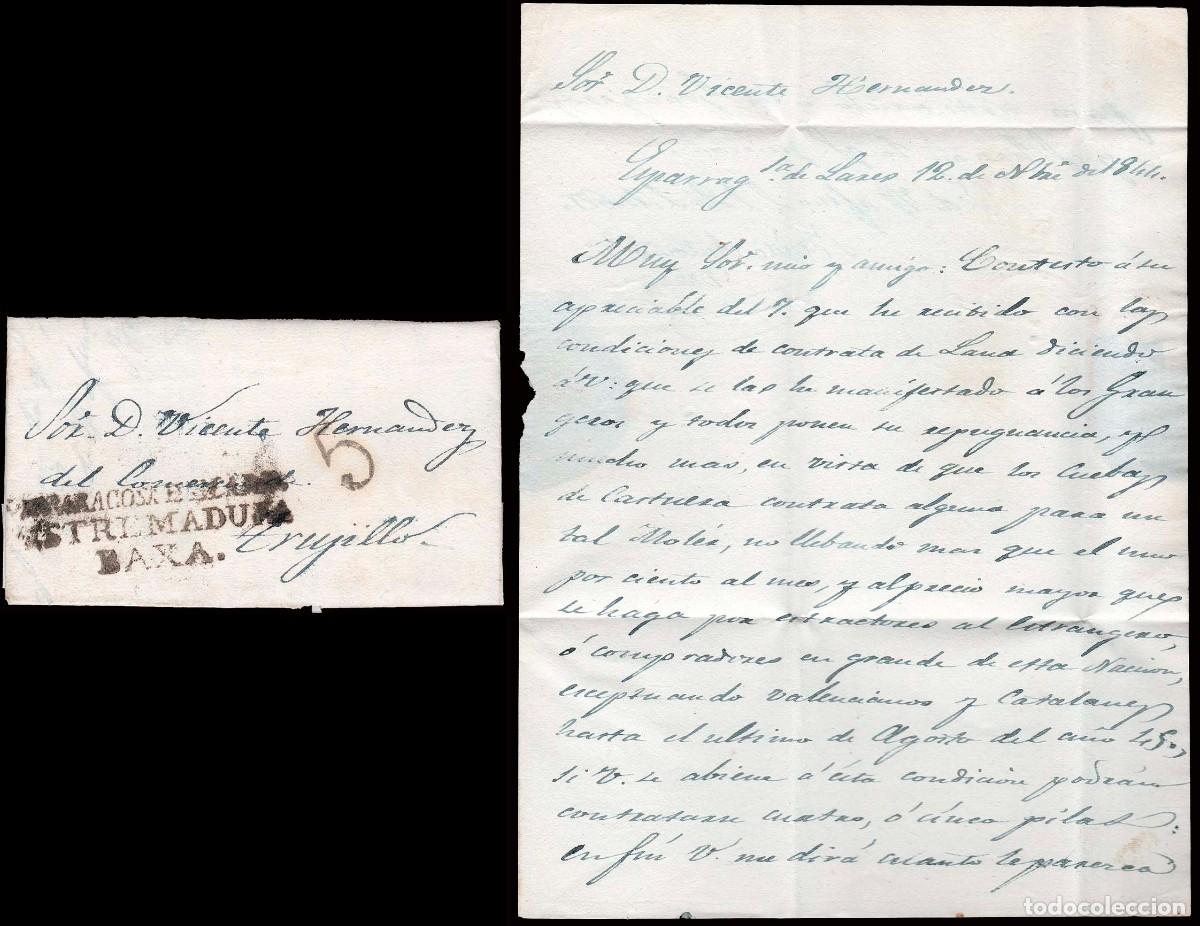 Sor. D. Vicente Hernandez
del Comercio de
5
ESPARRAGOSA
ESTREMADURA
BAXA.
Trujillo.
Sor. D. Vicente Hernandez.
Esparragsa. de Lares 12. de Nbre. del 1844.
Muy Sor. mio y amigo: Contesto á su
apreciable del 7. que he recibido con las
condiciones de contrata de Lana diciendo
á V: que se las he manifestado á los Gran
geros y todos ponen su repugnancia, y
mucho mas, en vista de que los Cuebas
de Castuera contrata alguna para un
tal Moléz, no llebando mas que el uno
por ciento al mes, y al precio mayor que
se haga por estractores al Estrangero,
ó compradores en grande de esta Nacion,
esceptuando valencianos y Catalanes
hasta el ultimo de Agosto del año 45.,
si V. se abiene á ésta condicion podrán
contratarse cuatro, ó cinco pilas:
en fin V. me dirá cuanto le parezca
todocoleccion.net